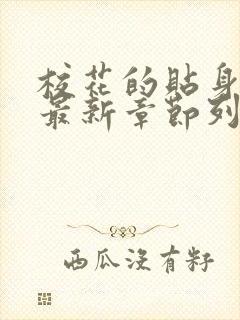 校花的貼身
最新章節列
西瓜沒有籽